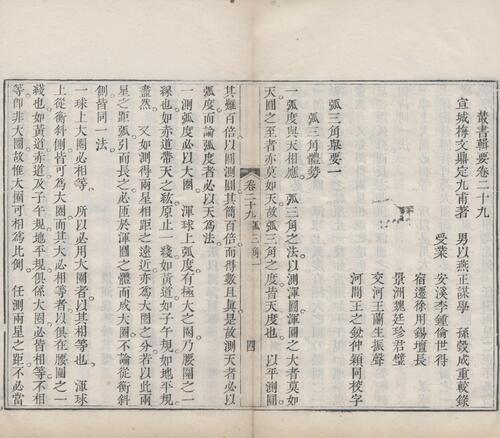 叢書輯要卷二十九
宣城梅文鼎定九甫著 男以燕正謀學 孫瑴成重較錄
受業 安溪李鍾倫世得
宿遷徐用錫壇長
景洲魏廷珍君璧
交河王蘭生振聲
河間王之銳仲穎同校字
弧三角舉要一
弧三角體勢
一弧度與天相應。 弧三角之法以測渾圜渾圜之大者莫如
天圜之至者亦莫如天故弧三角之度皆天度也 以平測圜
卷二十九 弧三角一 四
其難百倍以圜測圜其簡百倍而得數且眞是故測天者必以
弧度而論弧度者必以天爲法。
一測弧度必以大圈 渾球上弧度有極大之圈乃腰圍之一
綫也如赤道帶天之紘原止一綫如子午規如地平規
盡然 又如測得兩星相距之遠近亦為大圈之分若以此兩
星之距弧引而長之必匝於渾圜之體而成大圈不論從衡斜
側皆同一法。
一球上大圈必相等。 所以必用大圈者以其相等也。 渾球
上從衡斜側皆可為大圈而其大必相等者以俱在腰圍之一
綫也如黃道赤道及子午規地平規俱係大圈必皆相等不相
等卽非大圈故惟大圈可相爲比例 任測兩星之距不必當